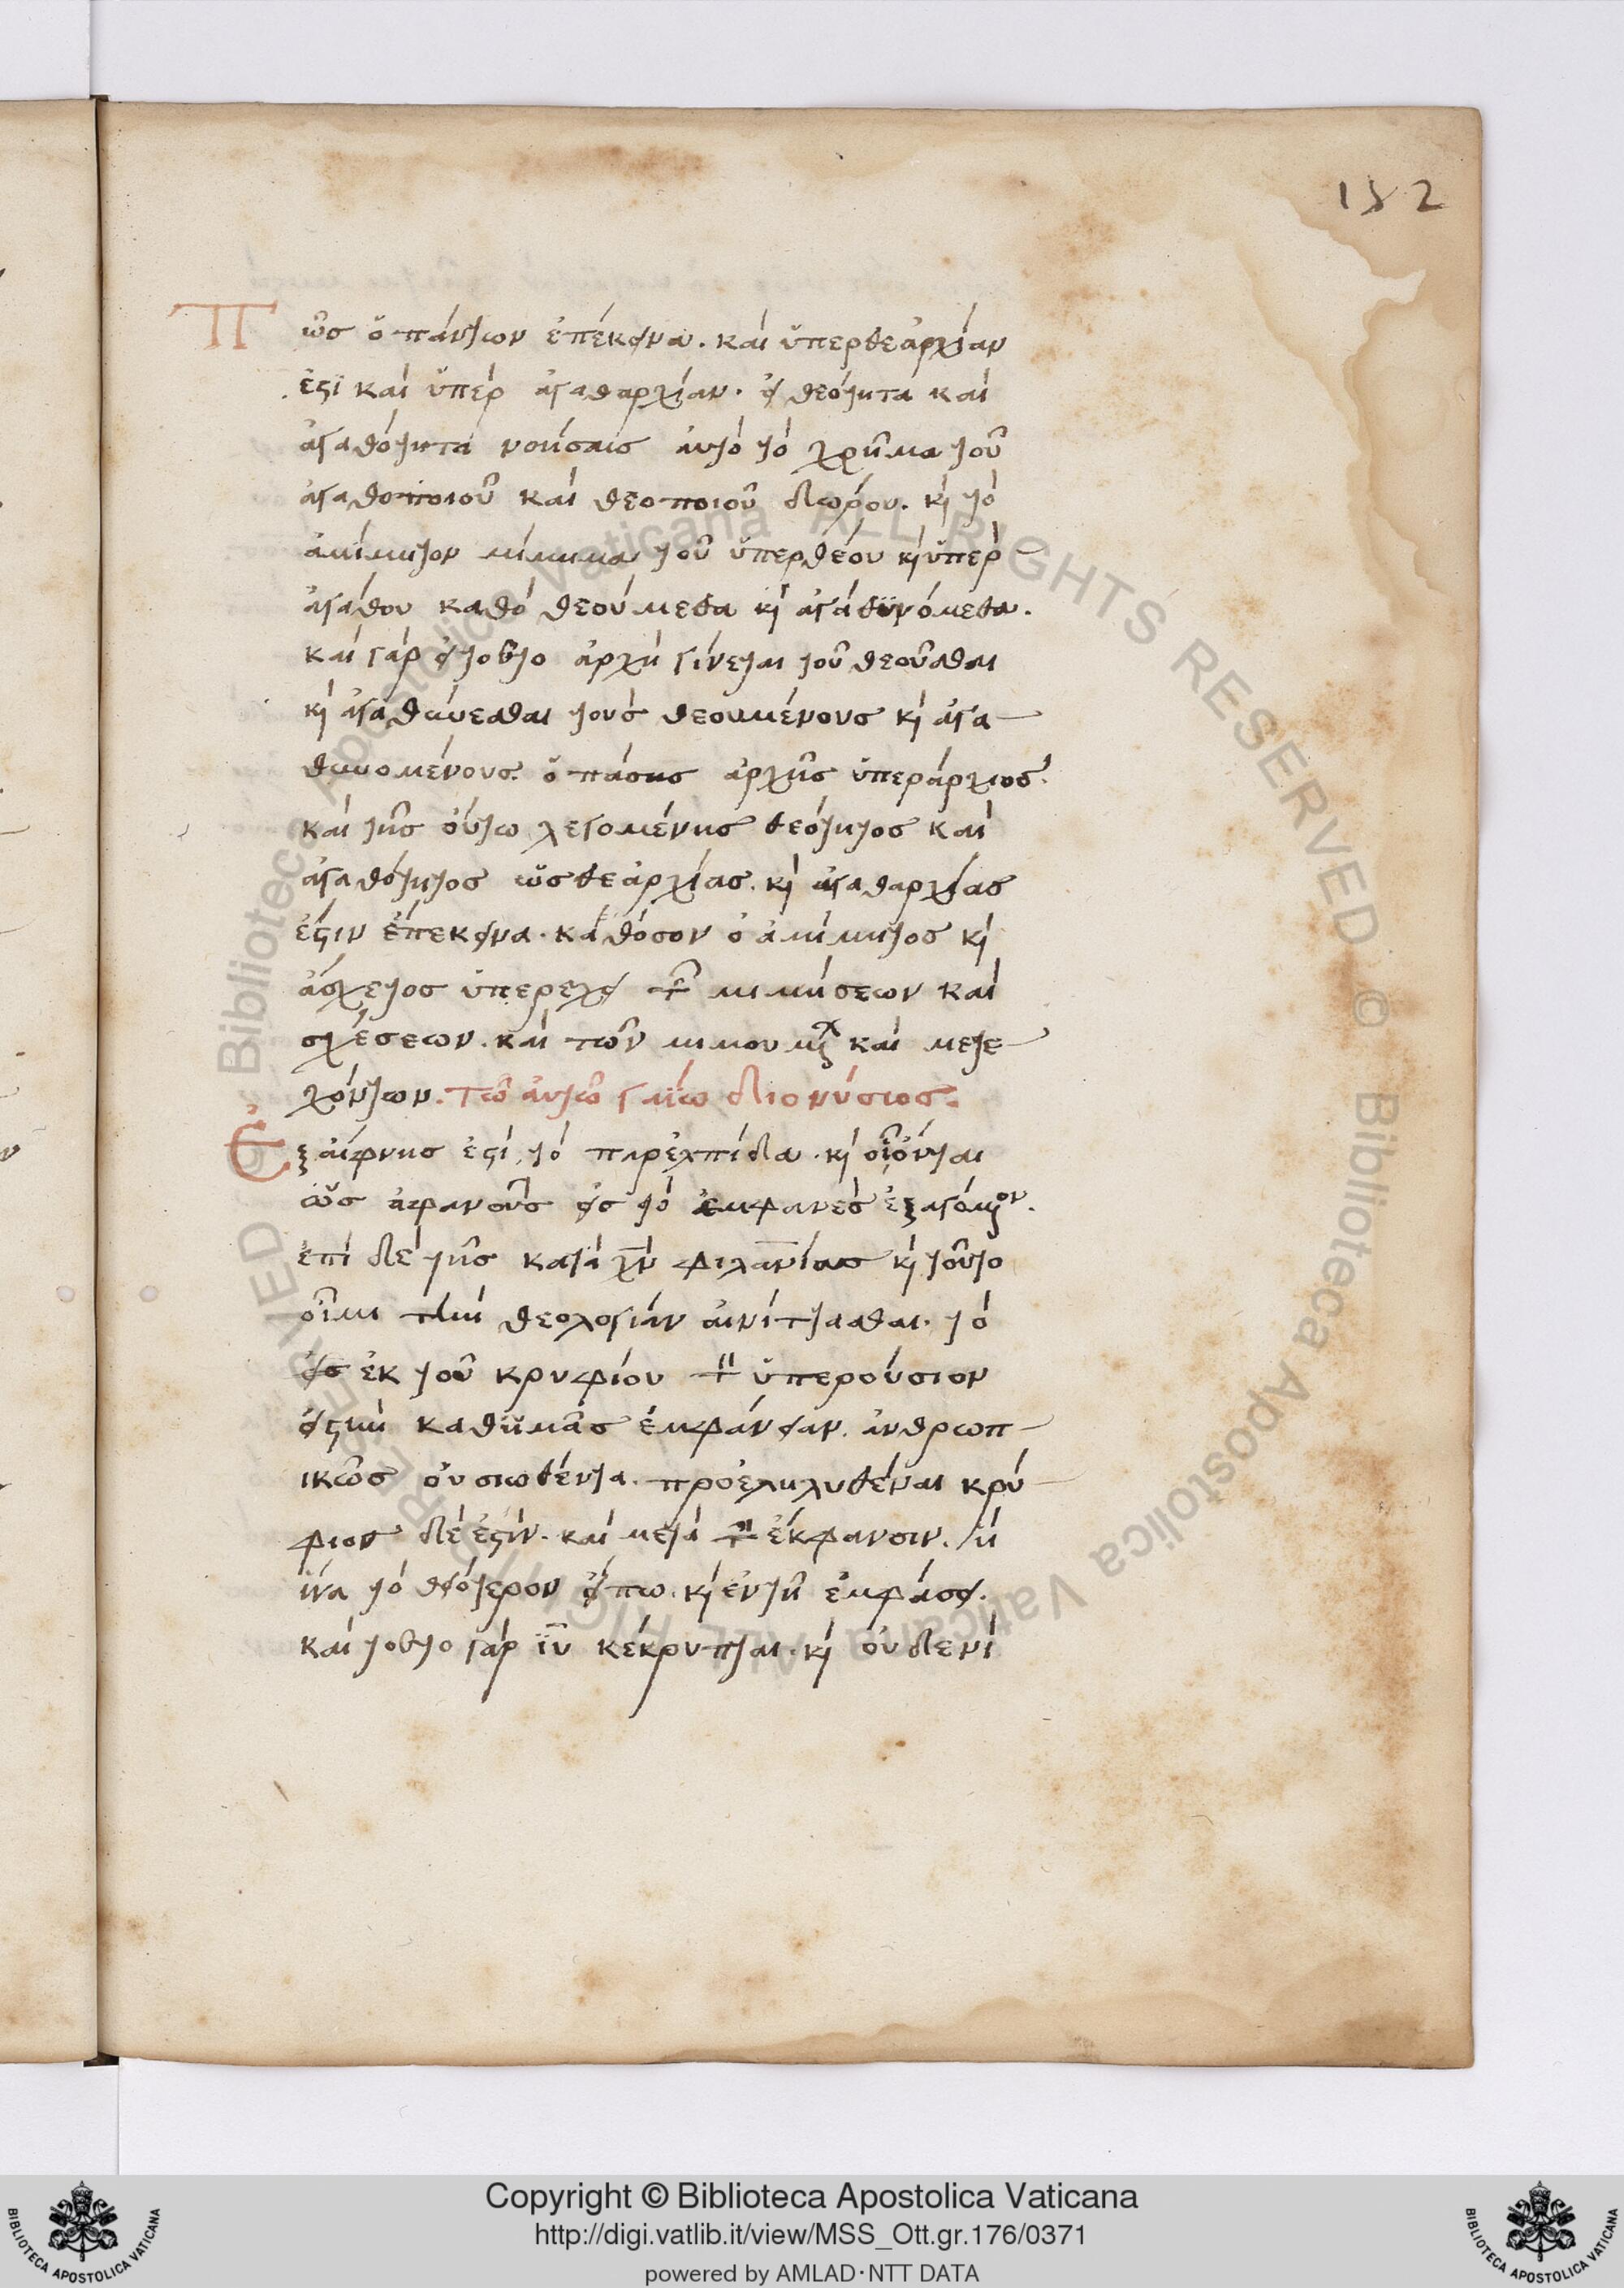 182
Πῶσ ὁ πάντων ἐπέκεινα. καὶ ὑπερθεαρχίαν
ἐστὶ καὶ ὑπὲρ ἀγαθαρχίαν. εἰ θεότητα καὶ
ἀγαθότητα νοήσαις αὐτὸ τὸ χρῆμα τοῦ
ἀγαθοποιοῦ καὶ θεοποιοῦ δώρου. κὶ τὸ
ἀμίμητον μίμημα τοῦ ὑπερθέου κὶ ὑπερ
ἀγάθου καθὸ θεούμεθα κὶ ἀγαθυνόμεθα.
καὶ γὰρ εἰ τοῦτο ἀρχὴ γίνεται τοῦ θεοῦσθαι
κὶ ἀγαθύνεσθαι τοὺσ θεουμένουσ κὶ ἀγα
θυνομένουσ. ὁ πάσησ ἀρχῆσ ὑπεράρχιοσ.
καὶ τῆσ οὕτω λεγομένησ θεότητοσ καὶ
ἀγαθότητοσ ὡσ θεαρχίασ. κὶ ἀγαθαρχίασ
ἐστὶν ἐπέκεινα. καθόσον ὁ ἀμίμητοσ κὶ
ἄσχετοσ ὑπερέχει τ̑ μιμήσεων καὶ
σχέσεων. καὶ τῶν μιμουμ καὶ μετε
χόντων. Τῶ αὐτῶ γαΐω διονύσιοσ.
Ἐξαίφνησ ἐστὶ τὸ παρἐλπίδα. κὶ οἱονται
ὡσ ἀφανοῦσ εἰσ τὸ ἐμφανὲσ ἐξαγόμον.
ἐπὶ δὲ τῆσ κατὰ χν φιλανίασ κὶ τοῦτο
οἶμαι τὴν θεολογίαν αἰνίττασθαι. τὸ
εἰσ ἐκ τοῦ κρυφίου τ ὑπερούσιον
εἰστὴν καθἡμᾶσ ἐμφάνειαν. ἀνθρωπ
ικῶσ οὐσιωθέντα. προεληλυθέναι κρύ
φιοσ δέ ἐστιν. καὶ μετὰ τ ἔκφανσιν. / ἢ
ἵνα τὸ θειότερον εἴπω. κὶ ἐν τῆ ἐμφάσει.
καὶ τοῦτο γὰρ ιυ κέκρυπται. κὶ οὐδενὶ
Copyright © Biblioteca Apostolica Vaticana
http://digi.vatlib.it/view/MSS_Ott.gr.176/0371
powered by AMLAD·NTT DATA
BIBLIOTECA APOSTOLICA VATICANA
BIBLIOTECA APOSTOLICA VATICANA
© Biblioteca Apostolica Vaticana ALL RIGHTS RESERVED
© Biblioteca Apostolica Vaticana ALL RIGHTS RESERVED